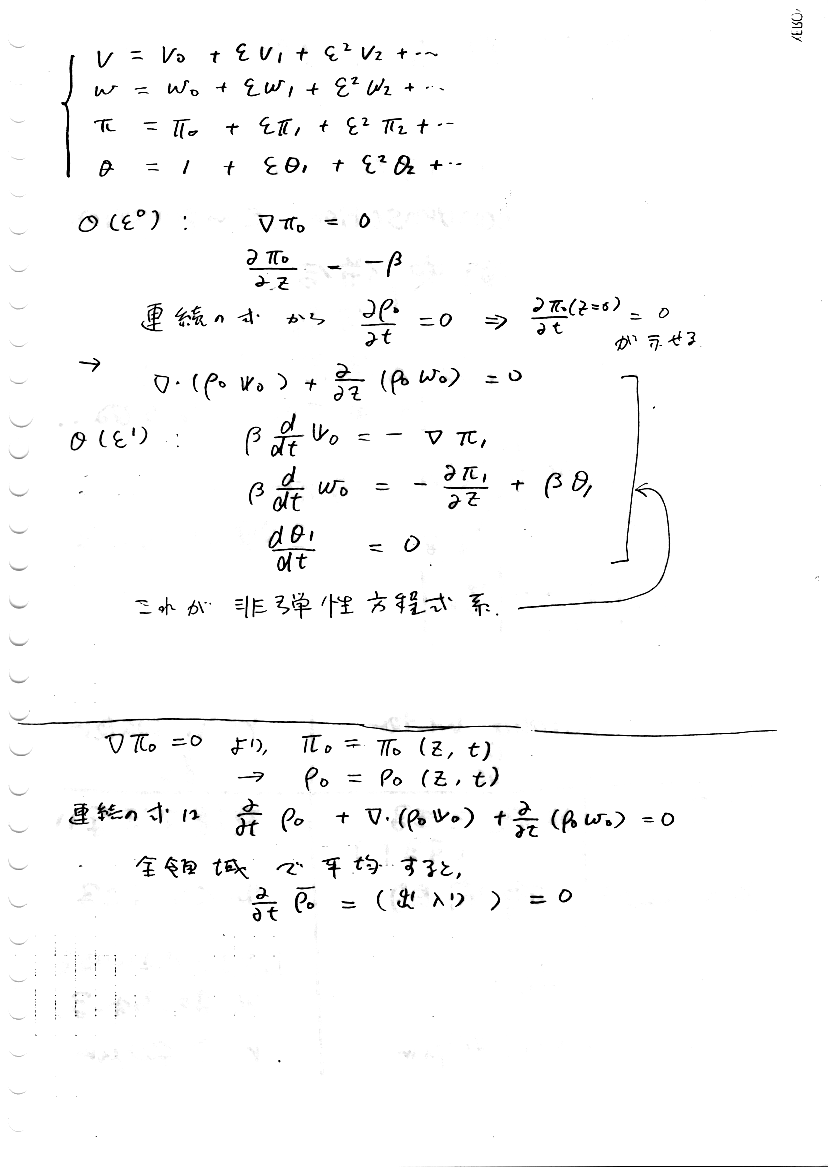 XEROX
V = V₀ + εV₁ + ε²V₂ + …
w = w₀ + εw₁ + ε²w₂ + …
π = π₀ + επ₁ + ε²π₂ + …
θ = 1 + εθ₁ + ε²θ₂ + …
O(ε⁰) : ∇π₀ = 0
∂π₀/∂z = -β
連続の式から ∂ρ₀/∂t = 0 ⇒ ∂π₀(z=0)/∂t = 0 が示せる
→ ∇·(ρ₀𝕍₀) + ∂/∂z (ρ₀w₀) = 0
O(ε¹) : β d/dt 𝕍₀ = - ∇π₁
β d/dt w₀ = - ∂π₁/∂z + βθ₁
dθ₁/dt = 0
これが非弾性方程式系.
∇π₀ = 0 より, π₀ = π₀(z, t)
→ ρ₀ = ρ₀(z, t)
連続の式は ∂/∂t ρ₀ + ∇·(ρ₀𝕍₀) + ∂/∂z (ρ₀w₀) = 0
全領域で平均すると,
∂/∂t ρ̄₀ = (出入り) = 0